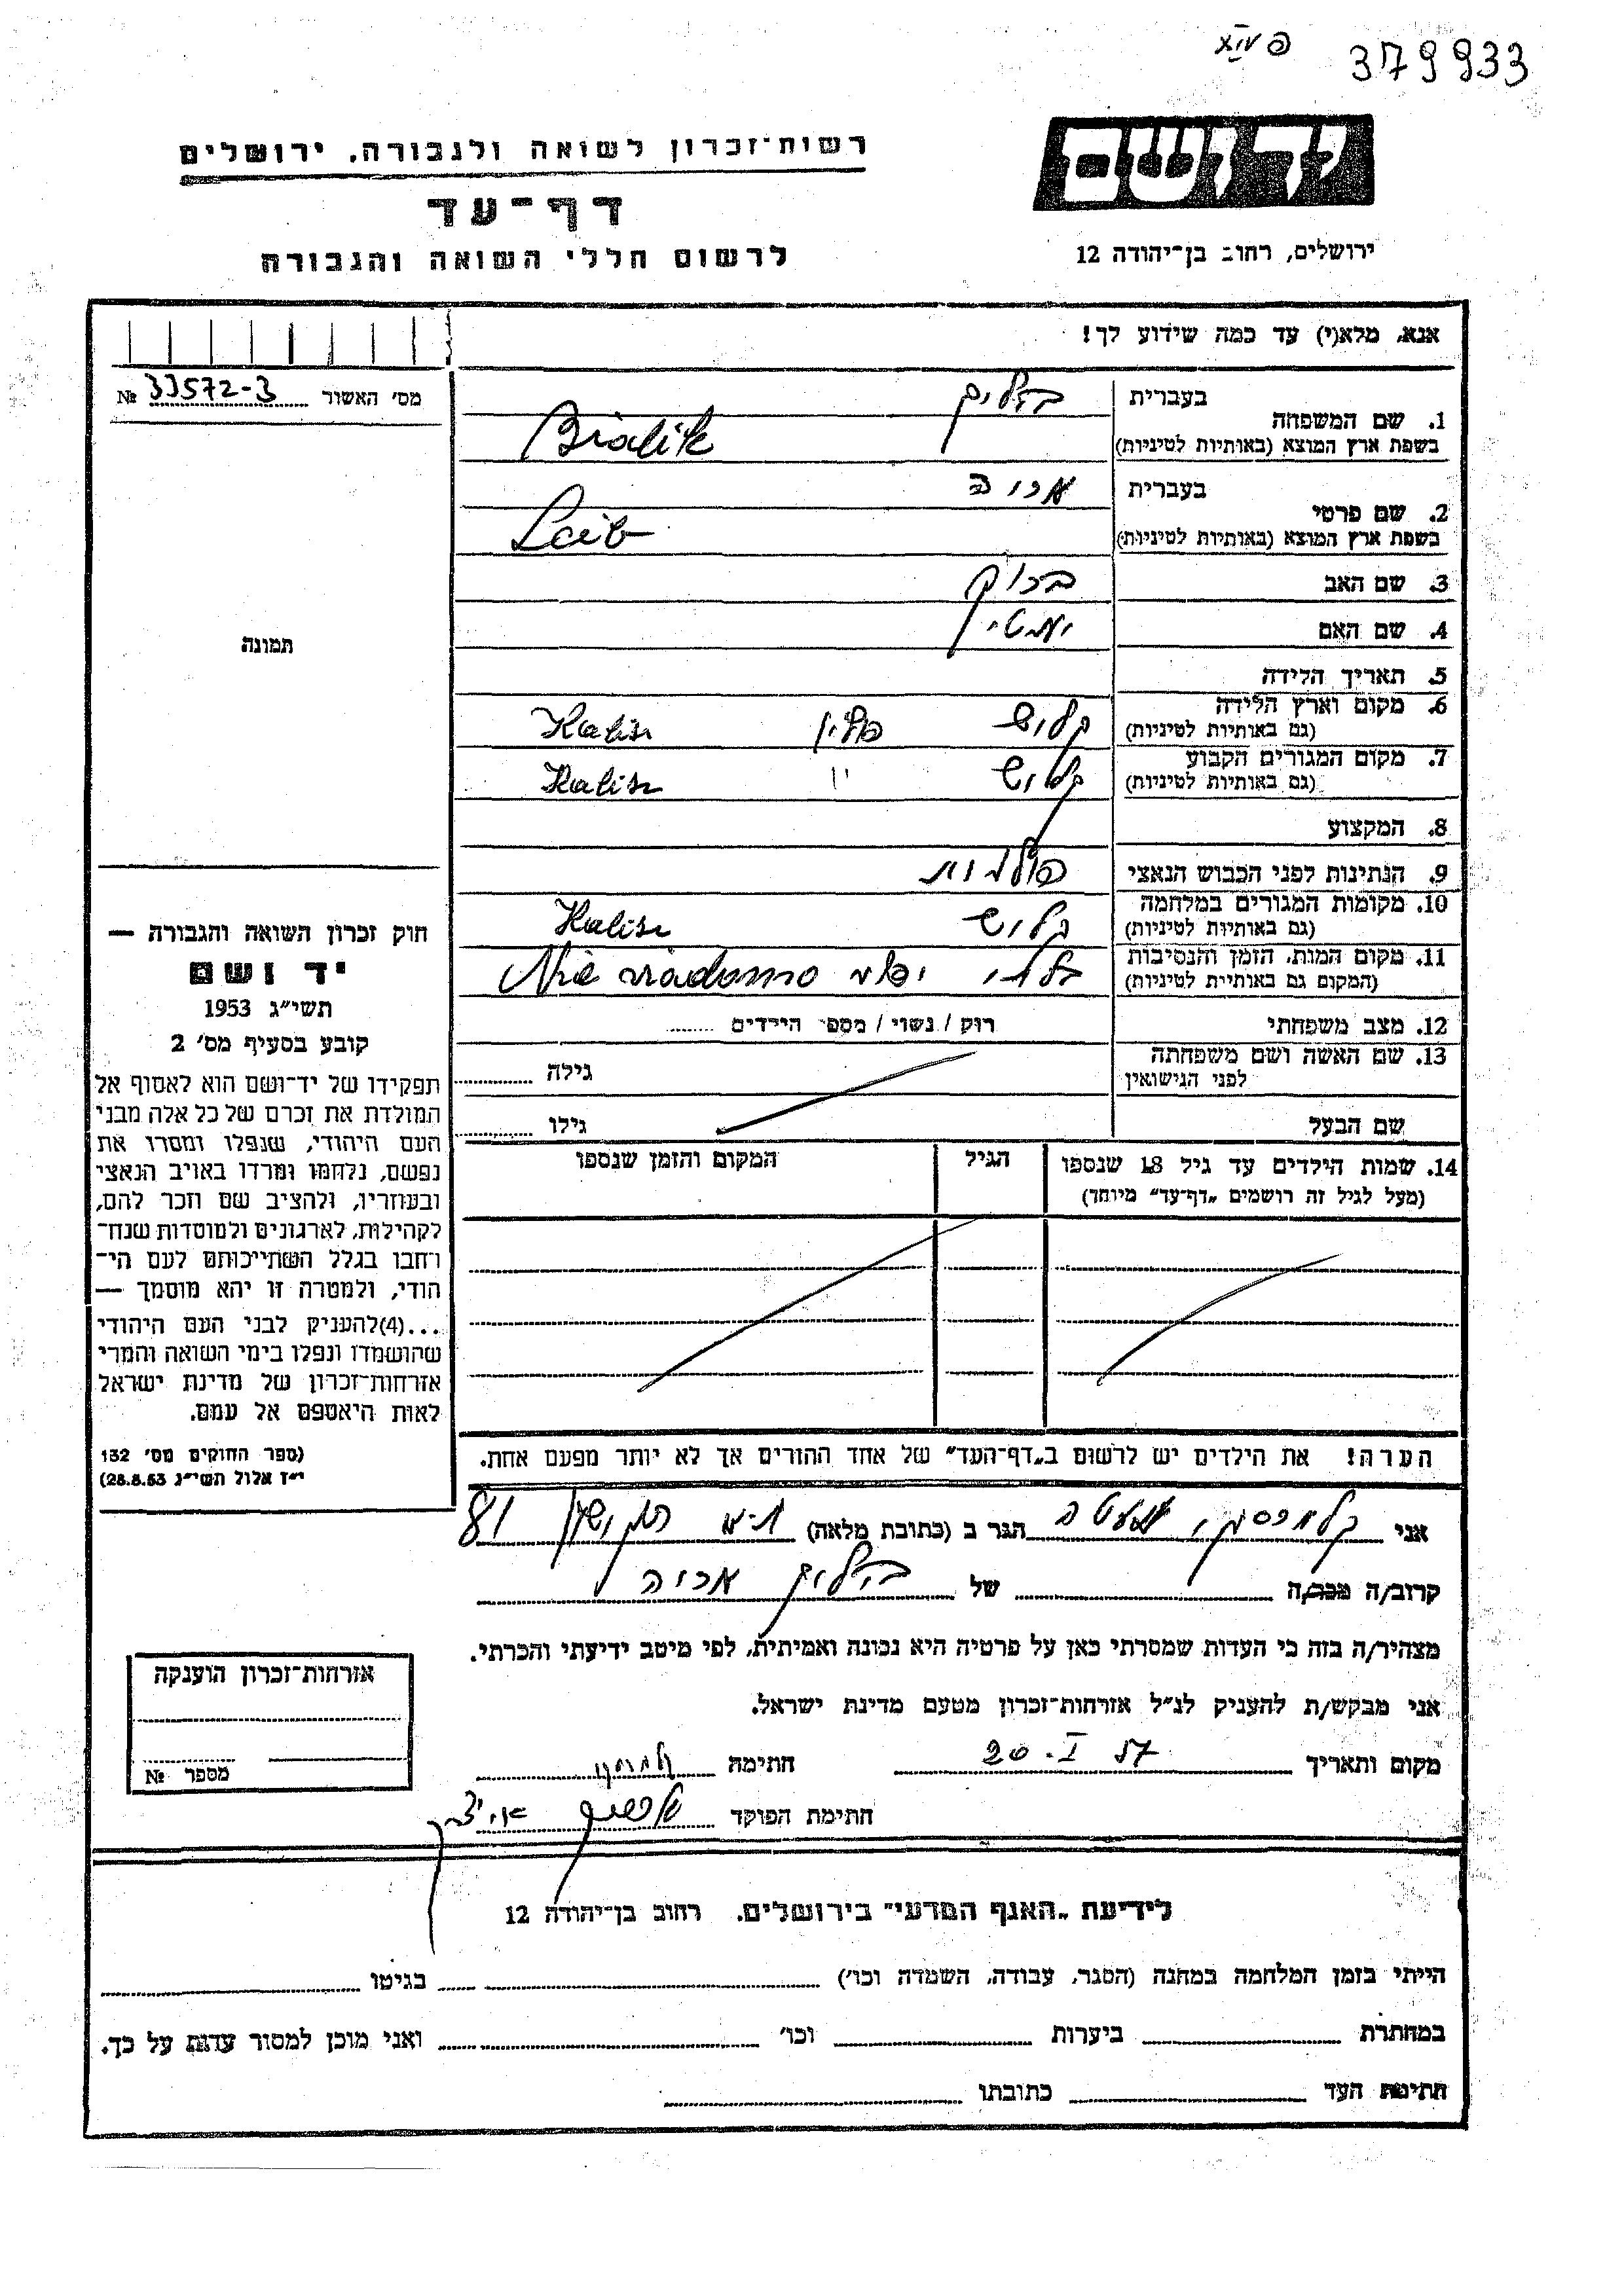 379933
רשות־זכרון לשואה ולגבורה, ירושלים
יד ושם
דף־עד
לרשום חללי השואה והגבורה
ירושלים, רחוב בן־יהודה 12
אנא, מלא(י) עד כמה שידוע לך!
מס׳ האשור № 33572-3
תמונה
1. שם המשפחה
בעברית ביאליק
בשפת ארץ המוצא (באותיות לטיניות) Bialik
2. שם פרטי
בעברית אריה
בשפת ארץ המוצא (באותיות לטיניות) Laib
3. שם האב ברוך
4. שם האם
5. תאריך הלידה
6. מקום וארץ הלידה (גם באותיות לטיניות) קליש פולין Kalisz
7. מקום המגורים הקבוע (גם באותיות לטיניות) קליש " Kalisz
8. המקצוע
9. הנתינות לפני הכבוש הנאצי פולנית
10. מקומות המגורים במלחמה (גם באותיות לטיניות) קליש Kalisz
11. מקום המות, הזמן והנסיבות (המקום גם באותיות לטיניות) בלתי ידוע Nie wiadomo
12. מצב משפחתי רווק / נשוי / מספר הילדים
13. שם האשה ושם משפחתה לפני הנישואין גילה
שם הבעל גילו
14. שמות הילדים עד גיל 18 שנספו
(מעל לגיל זה רושמים „דף־עד” מיוחד)
הגיל
המקום והזמן שנספו
הערה! את הילדים יש לרשום ב„דף־העד” של אחד ההורים אך לא יותר מפעם אחת.
חוק זכרון השואה והגבורה —
יד ושם
תשי״ג 1953
קובע בסעיף מס׳ 2
תפקידו של יד־ושם הוא לאסוף אל
המולדת את זכרם של כל אלה מבני
העם היהודי, שנפלו ומסרו את
נפשם, נלחמו ומרדו באויב הנאצי
ובעוזריו, ולהציב שם וזכר להם,
לקהילות, לארגונים ולמוסדות שנח־
רחבו בגלל השתייכותם לעם הי־
הודי, ולמטרה זו יהא מוסמך —
...(4)להעניק לבני העם היהודי
שהושמדו ונפלו בימי השואה והמרי
אזרחות־זכרון של מדינת ישראל
לאות היאספם אל עמם.
(ספר החוקים מס׳ 132
י״ז אלול תשי״ג 28.8.53)
אני הגר ב (כתובת מלאה) ת-א 81
קרוב/ה מכר/ה של ביאליק אריה
מצהיר/ה בזה כי העדות שמסרתי כאן על פרטיה היא נכונה ואמיתית, לפי מיטב ידיעתי והכרתי.
אני מבקש/ת להעניק לנ״ל אזרחות־זכרון מטעם מדינת ישראל.
מקום ותאריך 20.I 57 חתימה
חתימת הפוקד
אזרחות־זכרון הוענקה
מספר №
לידיעת „האגף המדעי” בירושלים, רחוב בן־יהודה 12
הייתי בזמן המלחמה במחנה (הסגר, עבודה, השמדה וכו׳) בגיטו
במחתרת ביערות וכו׳ ואני מוכן למסור עדות על כך.
חתימת העד כתובתו